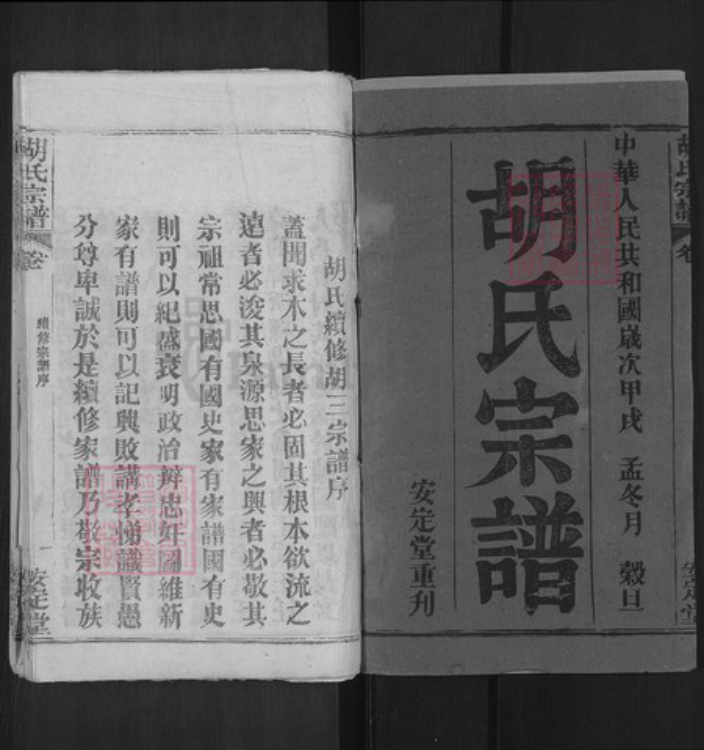 胡氏宗譜
卷
安定堂
中華人民共和國歲次甲戌 孟冬月 穀旦
胡氏宗譜
安定堂重刋
胡氏續修胡三宗譜序
蓋聞求木之長者必固其根本欲流之
遠者必浚其泉源思家之興者必敬其
宗祖常思國有國史家有家譜國有史
則可以紀盛衰明政治辨忠奸圖維新
家有譜則可以記興敗講孝悌議賢愚
分尊卑誠於是續修家譜乃敬宗收族
胡氏宗譜
卷
續修宗譜序
一
安定堂